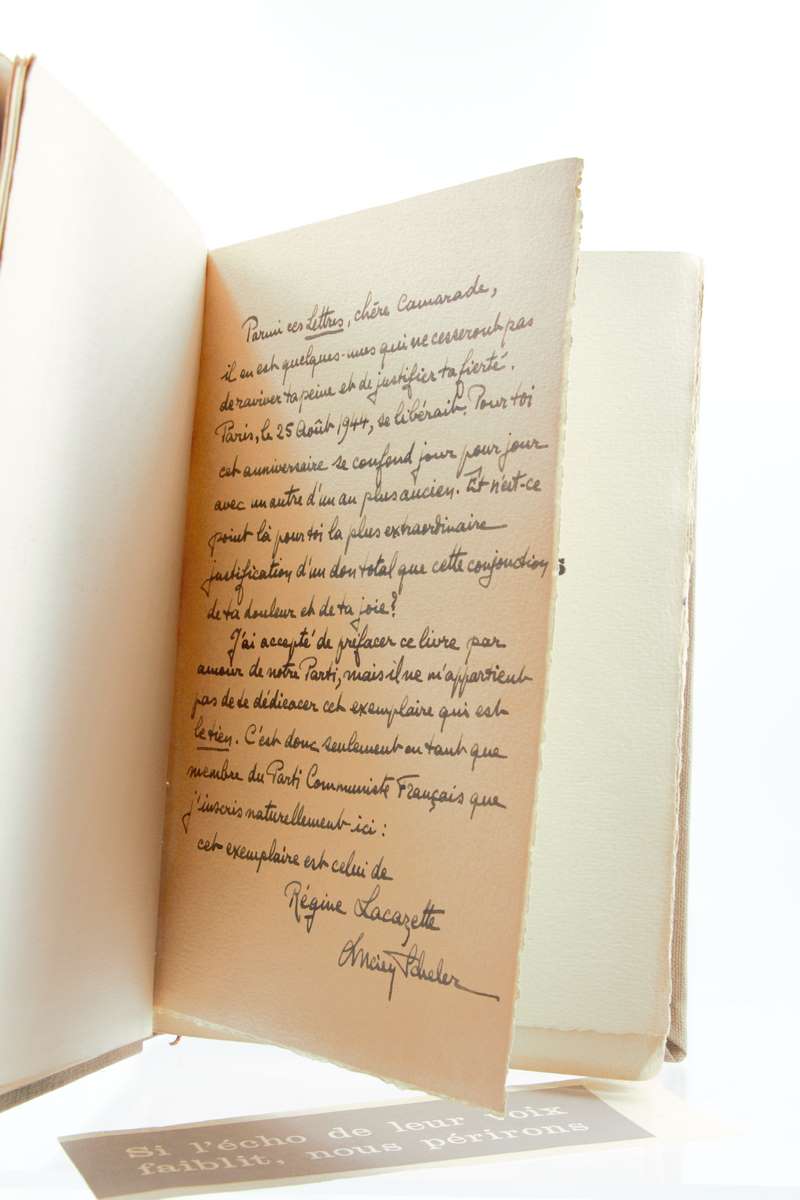 Parmi ces Lettres, chère Camarade,
il en est quelques-unes qui ne cesseront pas
de raviver ta peine et de justifier ta fierté.
Paris, le 25 Août 1944, se libérait. Pour toi
cet anniversaire se confond jour pour jour
avec un autre d'un an plus ancien. Et n'est-ce
point là pour toi la plus extraordinaire
justification d'un don total que cette conjonction
de ta douleur et de ta joie?
J'ai accepté de préfacer ce livre par
amour de notre Parti, mais il ne m'appartient
pas de te dédicacer cet exemplaire qui est
le tien. C'est donc seulement en tant que
membre du Parti Communiste Français que
j'inscris naturellement ici :
cet exemplaire est celui de
Régine Lacazette
Lucien Scheler
Si l'écho de leur voix
faiblit, nous périrons